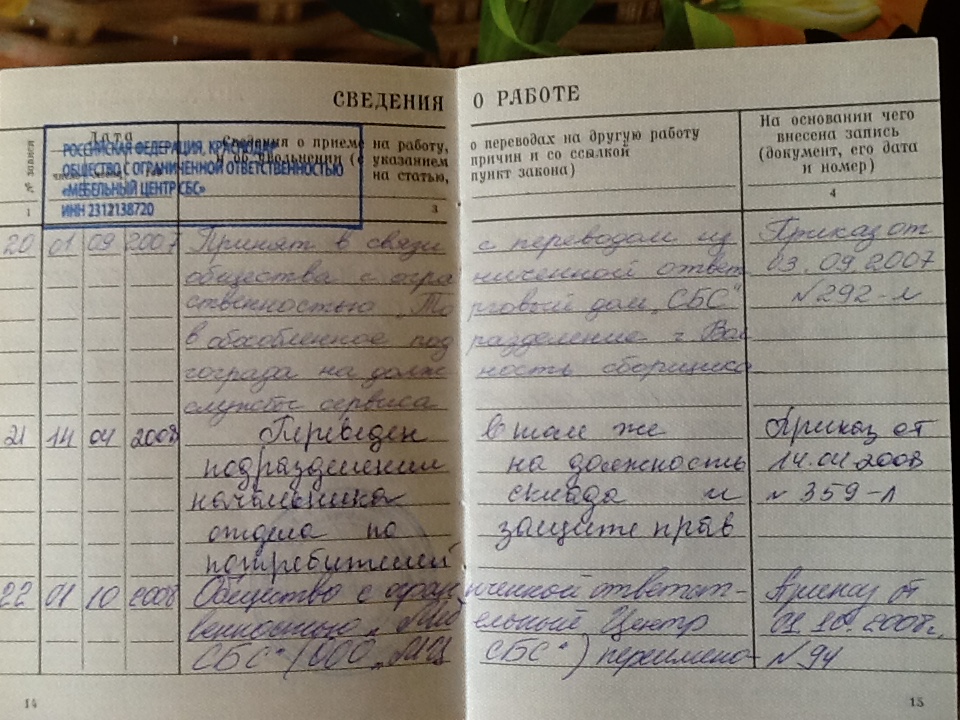 СВЕДЕНИЯ О РАБОТЕ
№ записи
Дата
Сведения о приеме на работу, о переводах на другую работу
и об увольнении (с указанием причин и со ссылкой
на статью, пункт закона)
На основании чего
внесена запись
(документ, его дата
и номер)
РОССИЙСКАЯ ФЕДЕРАЦИЯ,
ОБЩЕСТВО С ОГРАНИЧЕННОЙ ОТВЕТСТВЕННОСТЬЮ
«МЕБЕЛЬНЫЙ ЦЕНТР СБС»
ИНН 2312138720
1 3 4
20 01 09 2007 Принят в связи с переводом из Приказ от
общества с ограниченной ответ 03.09.2007
ственностью „Торговый дом „СБС“ №292-л
в обособленное подразделение г. Вол
гограда на должность сборщика
службы сервиса
21 14 04 2008 Переведен в том же Приказ от
подразделении на должность 14.04.2008
начальника склада и № 359-л
отдела по защите прав
потребителей
22 01 10 2008 Общество с ограниченной ответст- Приказ от
венностью „Мебельный Центр 01.10.2008г.
СБС“ (ООО „МЦ СБС“) переимено- №94
14 15